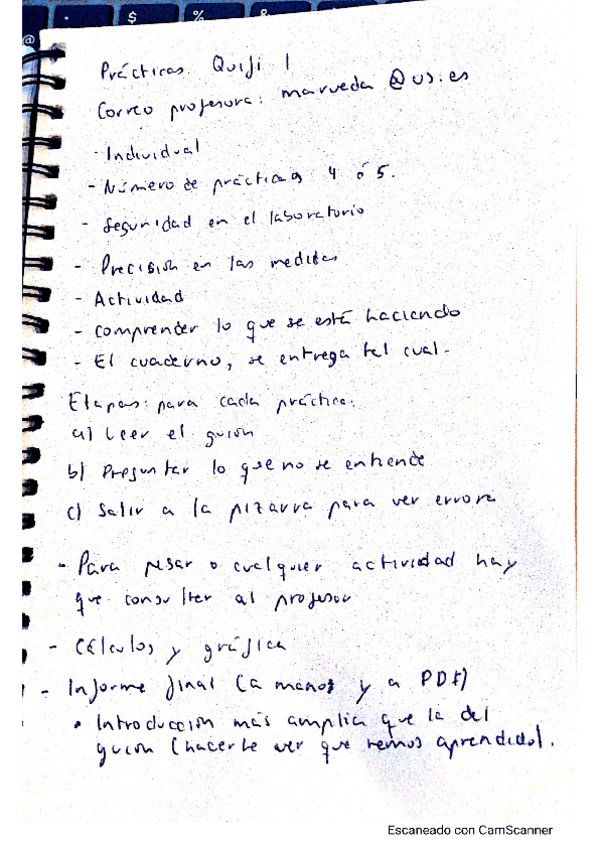 $
%
&
@
Prácticas Quifi I
Correo profesora: marveda @us.es
- Individual
- Número de prácticas 4 ó 5.
- Seguridad en el laboratorio
- Precisión en las medidas
- Actividad
- Comprender lo que se está haciendo
- El cuaderno, se entrega tal cual.
Etapas: para cada práctica:
a) Leer el guión
b) Preguntar lo que no se entiende
c) Salir a la pizarra para ver errores
- Para pesar o cualquier actividad hay
que consultar al profesor
- Cálculos y gráfica
- Informe final (a manos y a PDF)
• Introducción más amplia que la del
guión (hacerle ver que hemos aprendido).
Escaneado con CamScanner